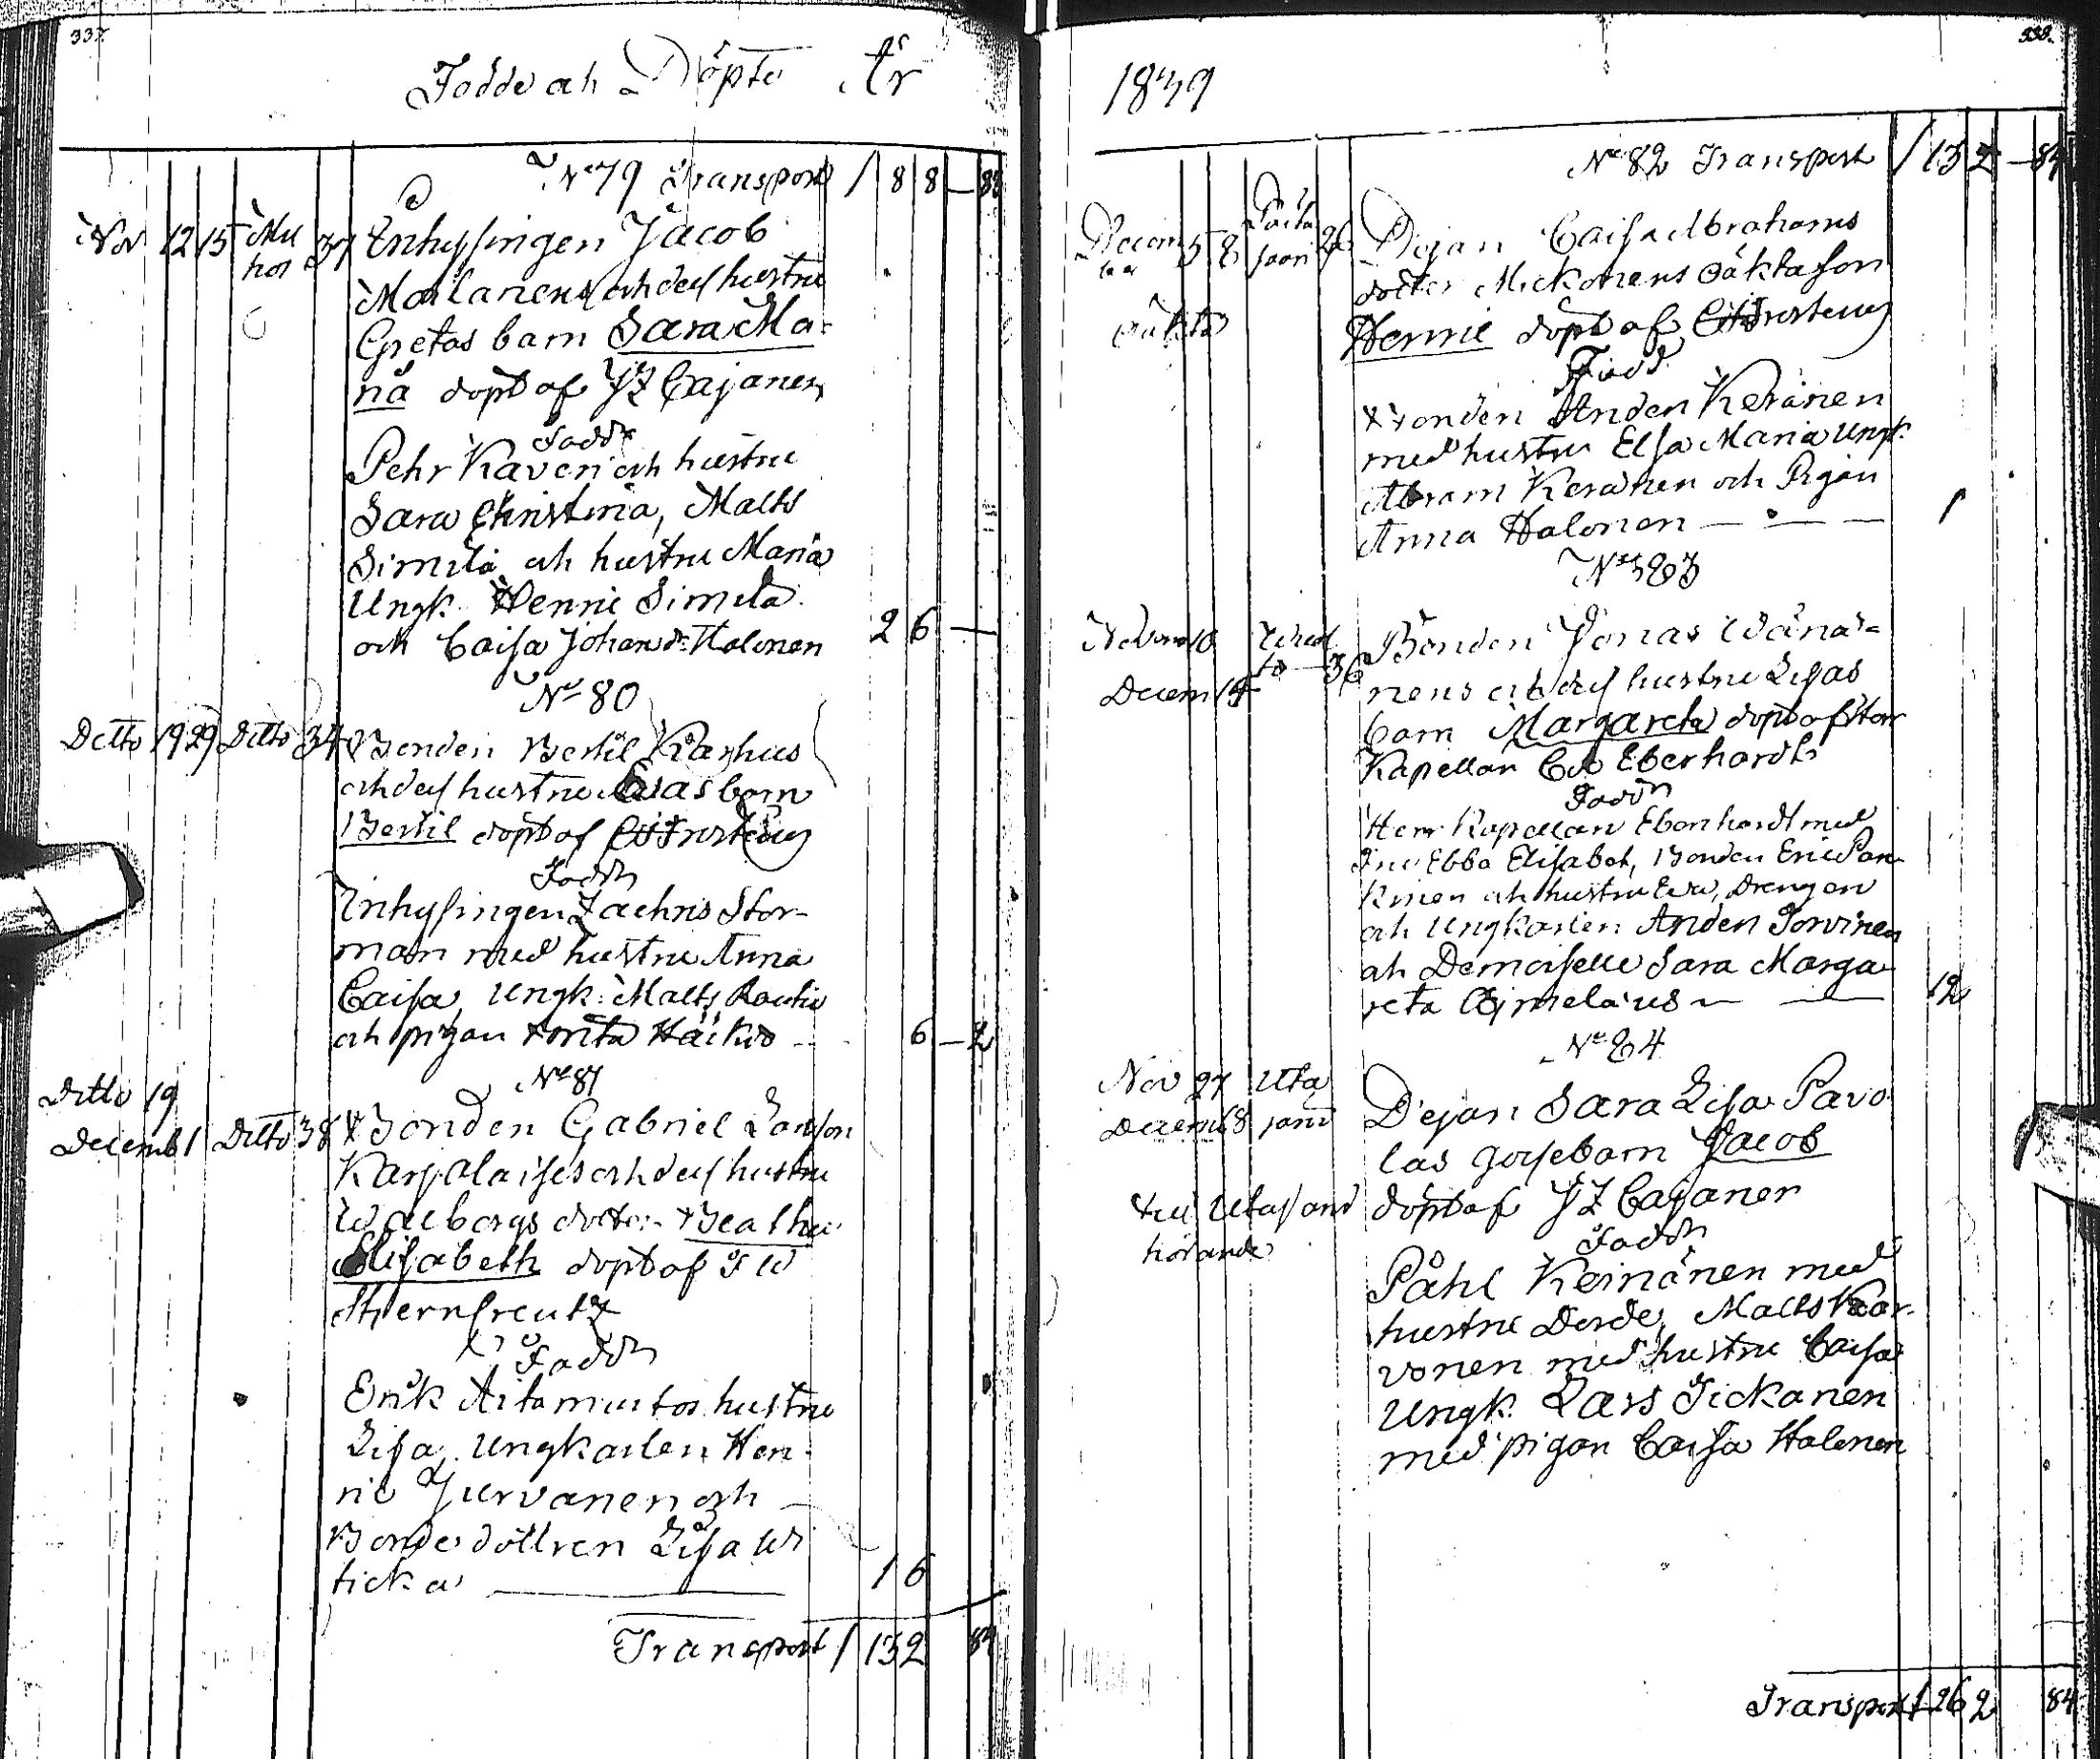 337.
Födde och Döpte År
No 79 Transport 1 8 8 — 82
Nov 12 15 Mu 37 Inhysingen Jacob
hos Mailanens och dess hustru
Gretas barn Sara Ma=
na döpt af JZ Cajanen
Fadd
Pehr Kaveri och hustru
Sara Christina, Matts
Simila och hustru Maria
Ungk. Henric Simila
och Caisa Johansdr Halonen 2 6 —
No 80
Ditto 19 29 Ditto 34 Bonden Bertil Karhus
och dess hustru Evas barn
Bertil döpt af
Fadd
Inhysingen Zachris Stor-
man med hustru Anna
Caisa, Ungk: Matts Rautio
och pigan Brita Häikiö 6 — 2
No 81
Ditto 19
Decemb 1 Ditto 38 Bonden Gabriel Larsson
Karjalaises och dess hustru
Walborgs dotter Beatha
Elisabeth döpt af F W
Stjerncreutz
Fadd
Erik Aitamurtos hustru
Lisa, Ungkarlen Hen-
ric Jurvanen och
Bonde dottren Lisa W
ticka 1 6
Transport 1 132 84
338.
1839
No 82 Transport 1 132 — 84
Decem 5 8 26 Pigan Caisa Abrahams
ber dotter Mickonens oäkta son
oäkta Henric döpt af
Fadd
Bonden Anders Keränen
med hustru Elsa Maria Ungk.
Abram Keränen och Pigan
Anna Halonen — — — 1
No 83
Novem 10 36 Bonden Jonas Wänä=
Decem 14 nens och dess hustru Lisas
barn Margareta döpt af Herr
Kapellan Eberhardt
Fadd
Herr Kapellan Eberhardt med
Fru Ebba Elisabet, Bonden Eric Par-
kinen och hustru Eva, Drengen
och Ungkarlen Anders Torvinen
och Demoiselle Sara Marga-
reta Cajmelæus — — 12
No 84
Nov 27 Uta Pigan Sara Lisa Pavo
Decemb 8 jarvi las gosse barn Jacob
till Utajarvi döpt af JZ Cajanen
hörande
Fadd
Påhl Keinänen med
hustru Dorde, Matts Kar-
vonen med hustru Caisa
Ungk. Lars Tickanen
med pigan Caisa Halonen
Transport 1 262 84